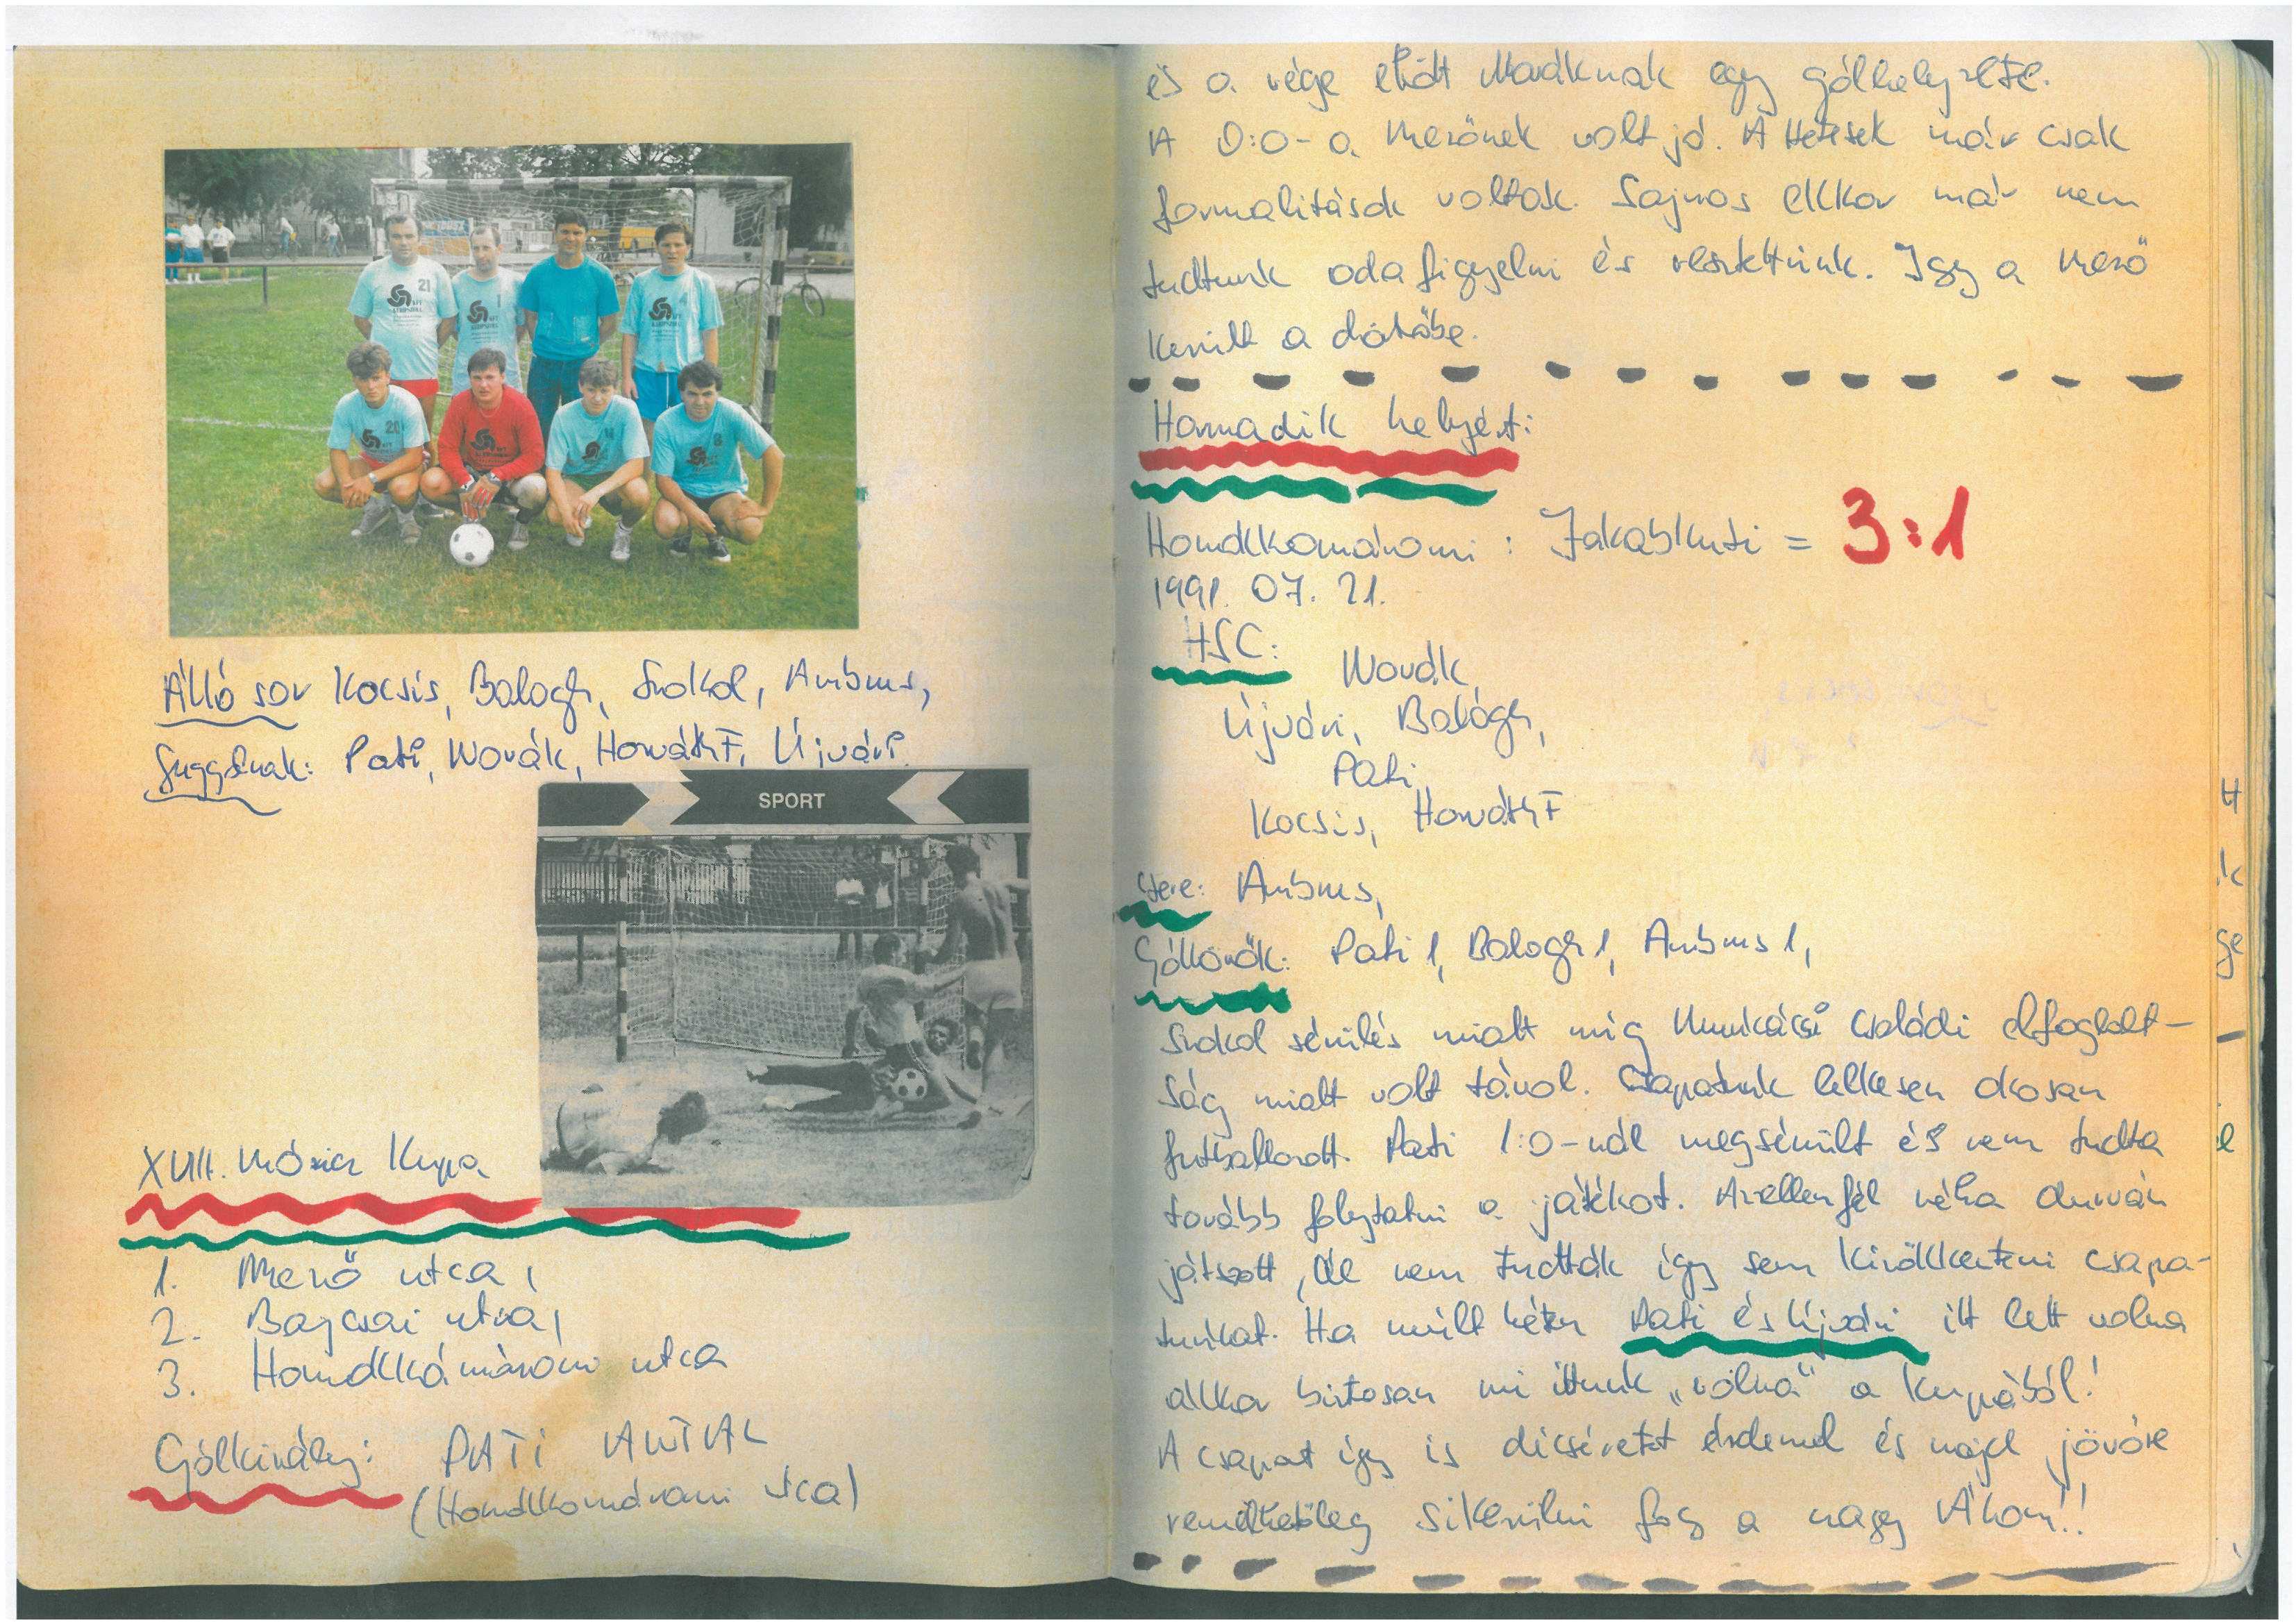 Álló sor Kocsis, Balogh, Szokol, Ambrus,
Guggolnak: Pati, Novák, Horváth F, Újvári.
SPORT
XVIII. Móricz Kupa
1. Mező utca,
2. Bajcsai utca,
3. Homokkomáromi utca
Gólkirály: PATI ANTAL
(Homokkomáromi utca)
és a vége előtt Nováknak egy gólhelyzete.
A 0:0-a Mezőnek volt jó. A Hetesek már csak
formalitások voltak. Sajnos ekkor már nem
tudtunk oda figyelni és vesztettünk. Igy a Mező
került a döntőbe.
Harmadik helyért:
Homokkomáromi : Jakabkuti = 3:1
1991. 07. 21.
HSC:
Novák,
Újvári, Balogh,
Pati,
Kocsis, Horváth F
Csere: Ambrus,
Góllövők: Pati 1, Balogh 1, Ambrus 1,
Szokol sérülés miatt mig Munkácsi családi elfoglalt-
ság miatt volt távol. Csapatunk lelkesen okosan
futballozott. Pati 1:0-nál megsérült és nem tudta
tovább folytatni a játékot. Az ellenfél néha durván
játszott, de nem tudták így sem kizökkenteni csapa-
tunkat. Ha mult héten Pati és Újvári itt lett volna
akkor biztosan mi ittunk „volna" a Kupából!
A csapat így is dicséretet érdemel és majd jövőre
remélhetőleg sikerülni fog a nagy Álom!!